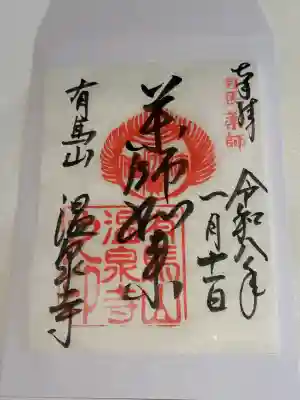 奉拝
有馬薬師
令和八年
一月十一日
薬師如来
有馬山
温泉寺
有馬山
温泉寺